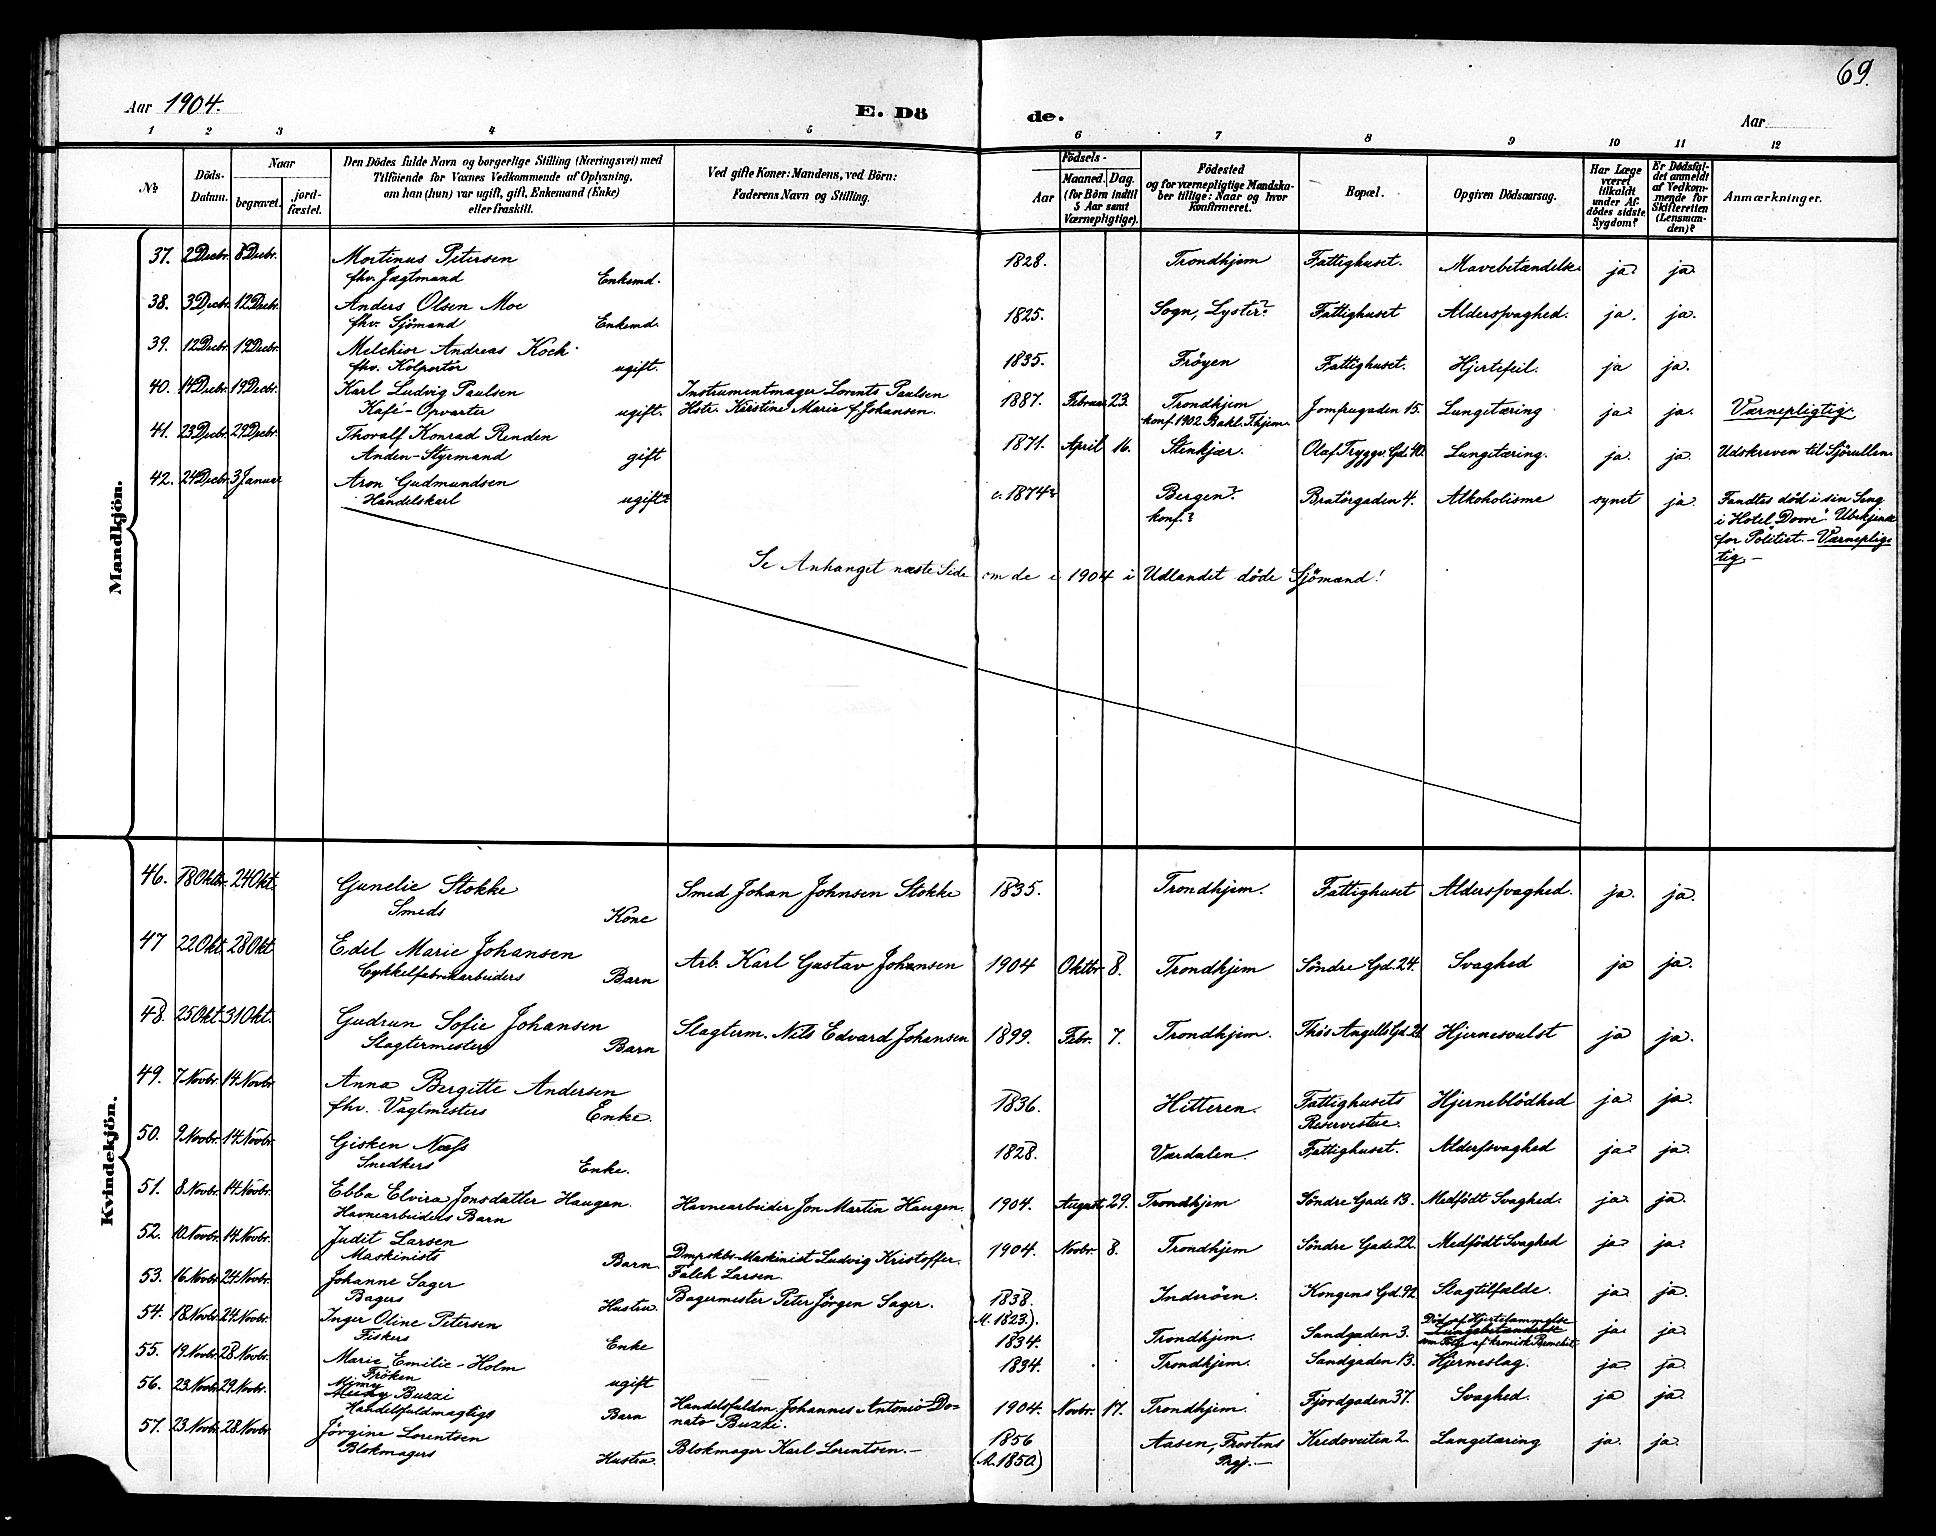 69.
Aar 1904.
E. Dö de.
Aar
1 2 3 4 5 6 7 8 9 10 11 12
No
Döds-Datum.
Naar
begravet.
jord-fæstet.
Den Dödes fulde Navn og borgerlige Stilling (Næringsvei) med
Tilföiende for Voxnes Vedkommende af Oplysning,
om han (hun) var ugift, gift, Enkemand (Enke)
eller fraskilt.
Ved gifte Koner: Mandens, ved Börn:
Faderens Navn og Stilling.
Födsels-
Aar
Maaned. Dag.
(for Börn indtil
5 Aar samt
Værnepligtige).
Födested
og for værnepligtige Mandska-
ber tillige: Naar og hvor
konfirmeret.
Bopæl.
Opgiven Dödsaarsag.
Har Læge
været
tilkaldt
under Af-
dödes sidste
Sygdom?
Er Dödsfal-
det anmeldt
af Vedkom-
mende for
Skifteretten
(Lensman-
den)?
Anmærkninger.
Mandkjön.
37. 2 Decbr. 8 Decbr. Martinus Petersen 1828. Trondhjem Fattighuset. Mavebetændelse ja ja
fhv. Jægtmand Enkemd.
38. 3 Decbr. 12 Decbr. Anders Olsen Moe 1825. Sogn, Lyster? Fattighuset Aldersvaghed. ja. ja.
fhv. Sjömand Enkemd.
39. 12 Decbr. 19 Decbr. Melchior Andreas Koch 1835. Fröyen Fattighuset. Hjertefeil. ja ja.
fhv. Kolportör ugift.
40. 14 Decbr. 19 Decbr. Karl Ludvig Paulsen Instrumentmager Lorents Paulsen 1887. Februar 23. Trondhjem Jomfrugaden 15. Lungetæring ja ja. Værnepligtig.
Kafé-Opvarter ugift. Hstr. Kirstine Marie f. Johansen. konf. 1902 Bakl. Thjem.
41. 23 Decbr. 29 Decbr. Thoralf Konrad Renden 1871. April 16. Stenkjær. Olaf Tryggv. Gd. 40. Lungetæring. ja. ja. Udskreven til Sjörullen.
Anden-Styrmand gift
42. 24 Decbr. 3 Januar Aron Gudmundsen c. 1874? Bergen? Bratörgaden 4. Alkoholisme synet ja. Fandtes död i sin Seng
Handelskarl ugift? konf.? i Hotel "Dovre". Ubekjendt
for Politiet. - Værneplig-
tig -
Se Anhanget næste Side om de i 1904 i Udlandet döde Sjömænd!
Kvindekjön.
46. 18 Oktbr. 24 Okt. Gunelie Stokke Smed Johan Johnsen Stokke 1835. Trondhjem. Fattighuset Aldersvaghed. ja. ja.
Smeds Kone
47 22 Okt. 28 Okt. Edel Marie Johansen Arb. Karl Gustav Johansen 1904 Oktbr. 8. Trondhjem Söndre Gd. 24. Svaghed ja ja.
Cykkelfabrikarbeiders Barn
48. 25 Okt. 31 Okt. Gudrun Sofie Johansen Slagterm. Nils Edvard Johansen 1899. Febr. 7. Trondhjem. Ths Angells Gd. 21 Hjernesvulst ja ja.
Slagtermesters Barn
49. 7 Novbr. 14 Novbr. Anna Bergitte Andersen 1836. Hitteren. Fattighusets Hjerneblödhed ja. ja.
fhv. Vagtmesters Enke. Reservestue.
50. 9 Novbr. 14 Novbr. Gisken Næss 1828. Værdalen. Fattighuset. Aldersvaghed ja ja.
Snedkers Enke.
51. 8 Novbr. 14 Novbr. Ebba Elvira Jonsdatter Haugan. Havnearbeider Jon Martin Haugen. 1904. August 29. Trondhjem Söndre Gade 13. Medfödt Svaghed. ja. ja.
Havnearbeiders Barn
52. 10 Novbr. 14 Novbr. Judit Larsen Dmpskbs-Maskinist Ludvig Kristoffer 1904. Novbr. 8. Trondhjem Söndre Gade 22. Medfödt Svaghed ja ja.
Maskinists Barn Falch Larsen.
53. 16 Novbr. 24 Novbr. Johanne Sager Bagermester Peter Jörgen Sager. 1838. Inderöen. Kongens Gd. 92 Slagtilfælde. ja. ja.
Bagers Hustru (M. 1823).
54. 18 Novbr. 24 Novbr. Inger Oline Petersen 1834. Trondhjem. Sandgaden 3. Död af Hjertelammelse ja. ja.
Fiskers Enke Lungebetændelse
som Fölge af kronisk Bronchit.
55. 19 Novbr. 28 Novbr. Marie Emilie Holm 1834. Trondhjem. Sandgaden 13. Hjerneslag. ja. ja.
Fröken ugift
56. 23 Novbr. 29 Novbr. Mimy Buzzi Handelsfuldm. Johannes Antonio Do- 1904. Novbr. 17. Trondhjem. Fjordgaden 37. Svaghed. ja ja.
Handelsfuldmægtigs Barn nato Buzzi.
57. 23 Novbr. 28 Novbr. Jörgine Lorentsen Blokmager Karl Lorentsen. - 1856 Aasen, Frostens Kredoveiten 2. Lungetæring ja. ja.
Blokmagers Hustru (M. 1850) Prgj. -